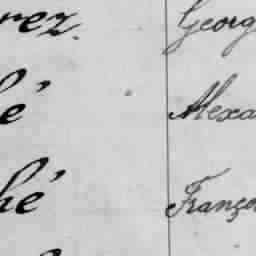 rez. Georg
hé Alexa
ché Franço